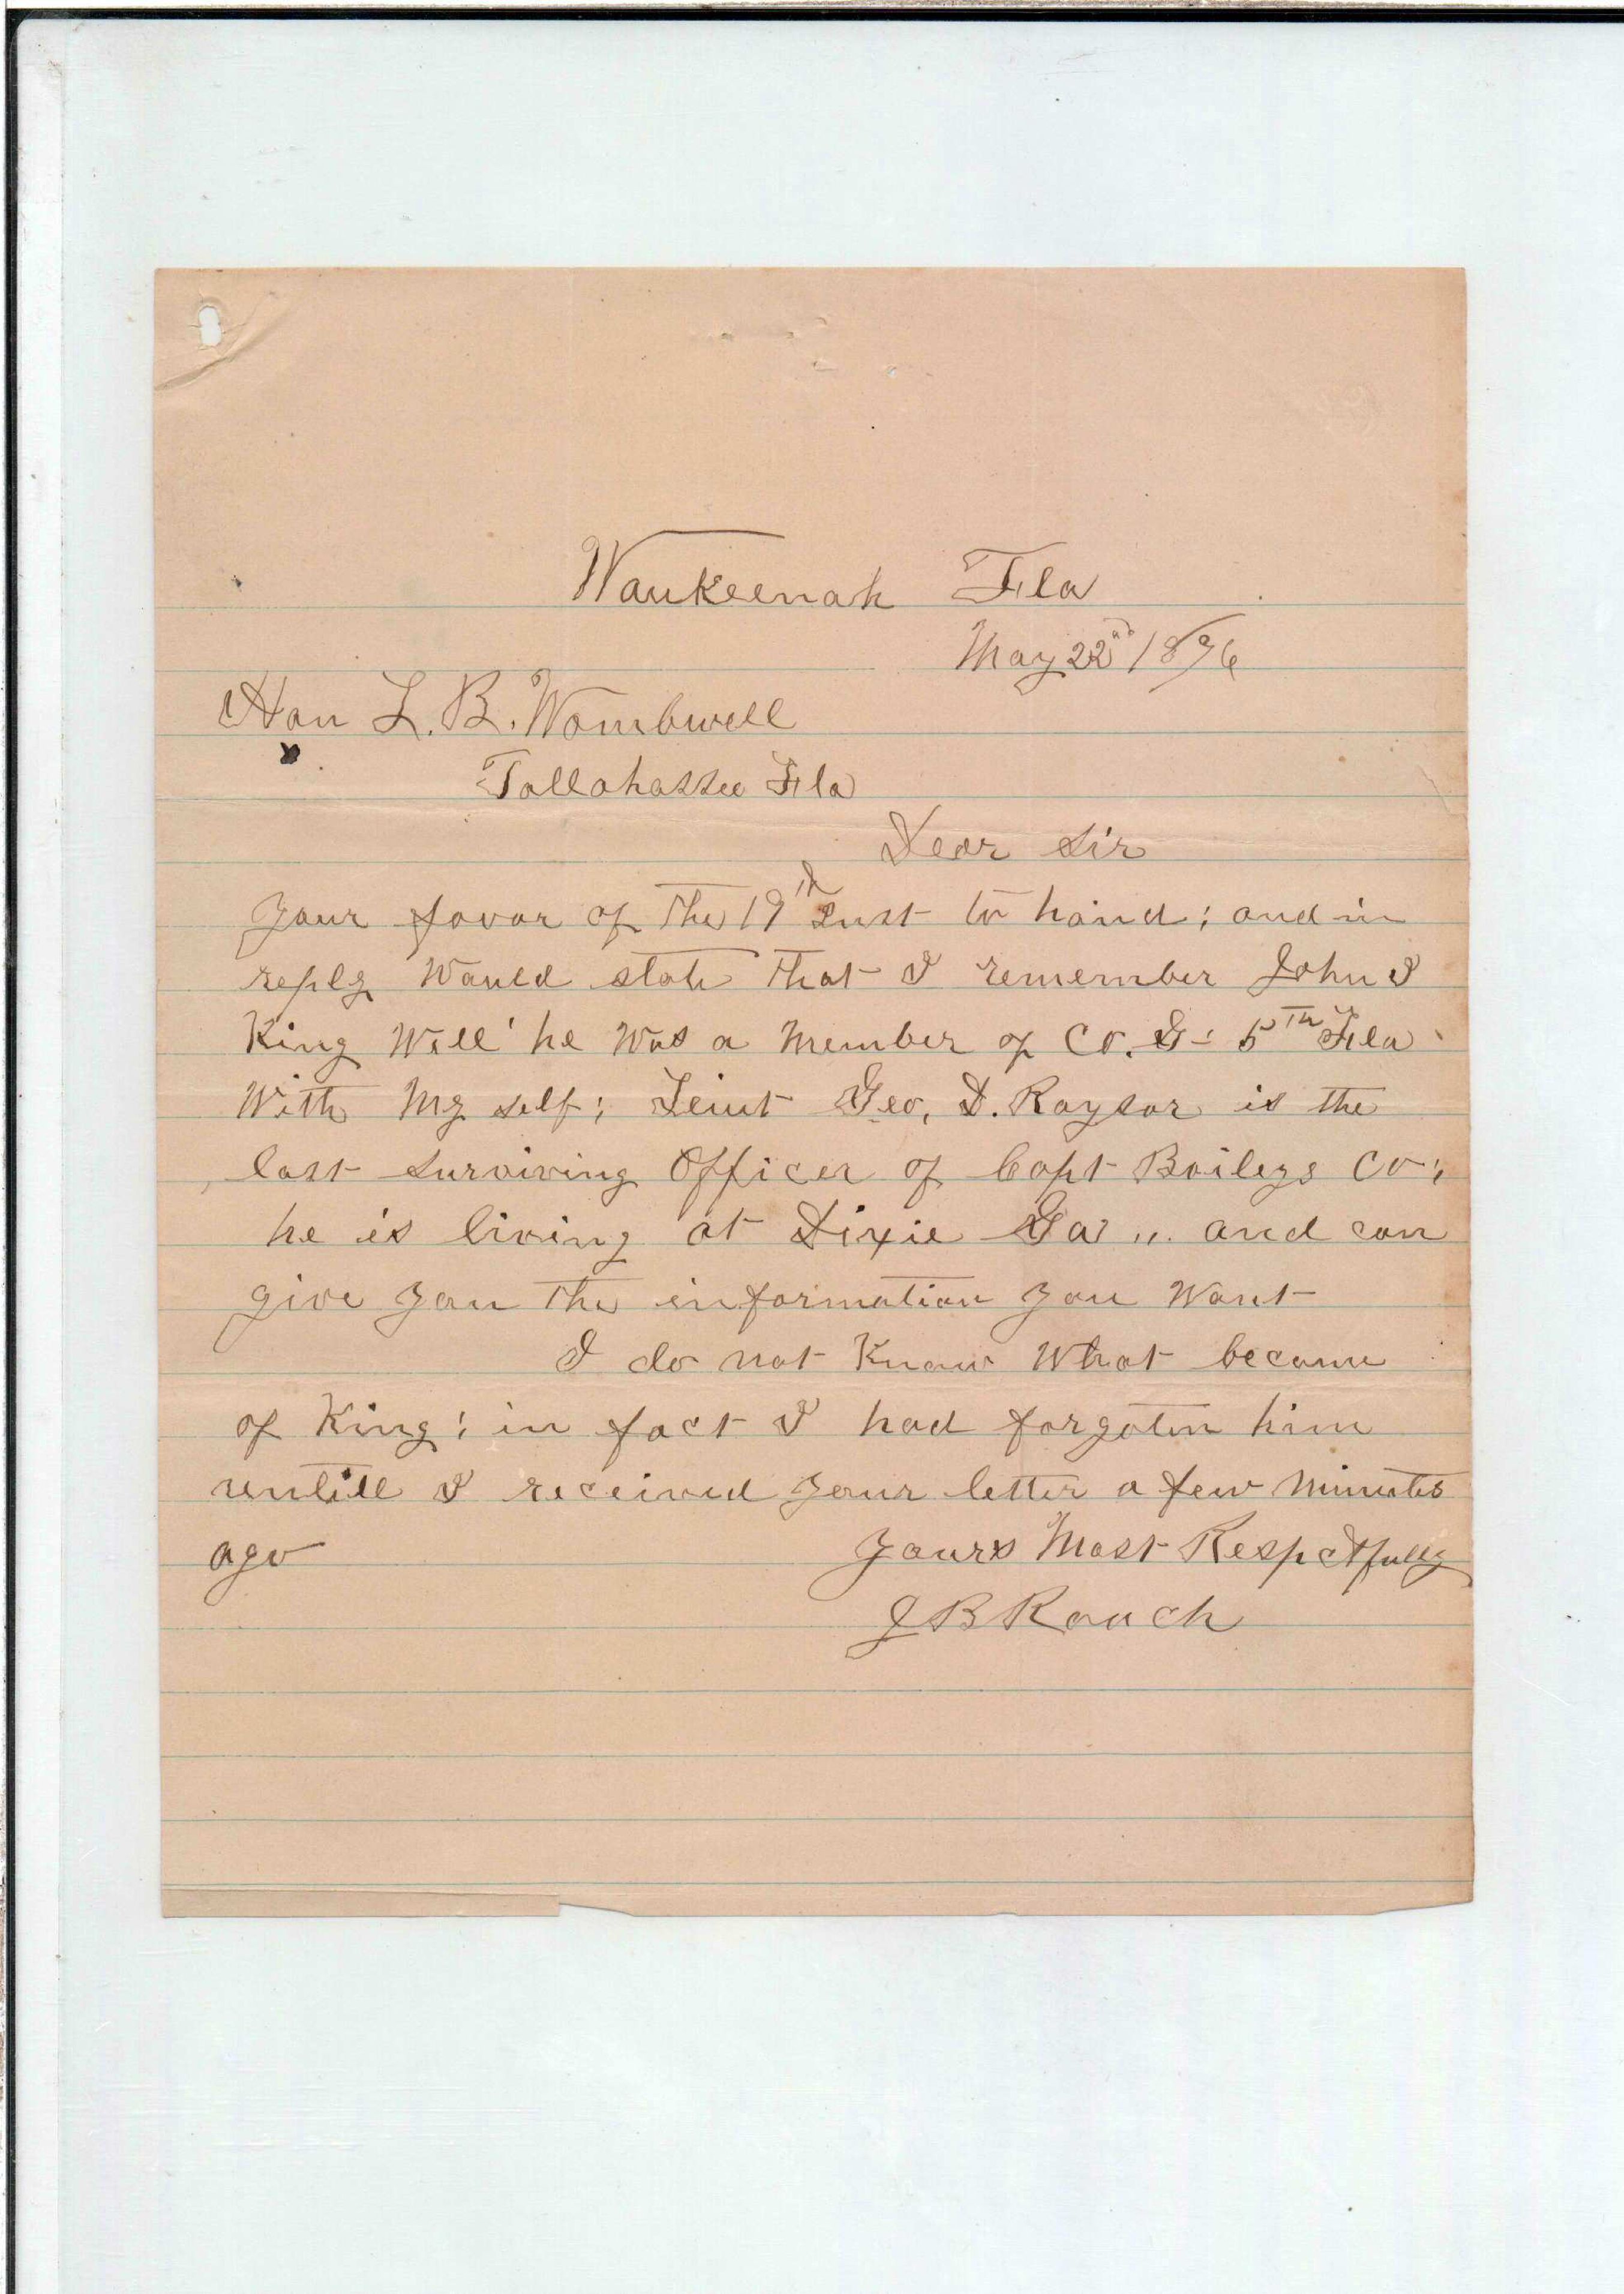 Waukeenah Fla
May 22nd 1896
Hon L. B. Wombwell
Tallahassee Fla
Dear Sir
Your favor of The 19th Inst to hand; and in
reply Would state That I remember John I
King Well' he Was a Member of Co. G- 5th Fla
With My self; Leiut Geo, D. Raysor is the
last surviving Officer of Capt Baileys Co;
he is living at Dixie Ga ,, and can
give you The information you Want
I do not Know What became
of King; in fact I had forgoten him
untill I received your letter a few Minutes
ago Yours Most Respctfully
J B Roach